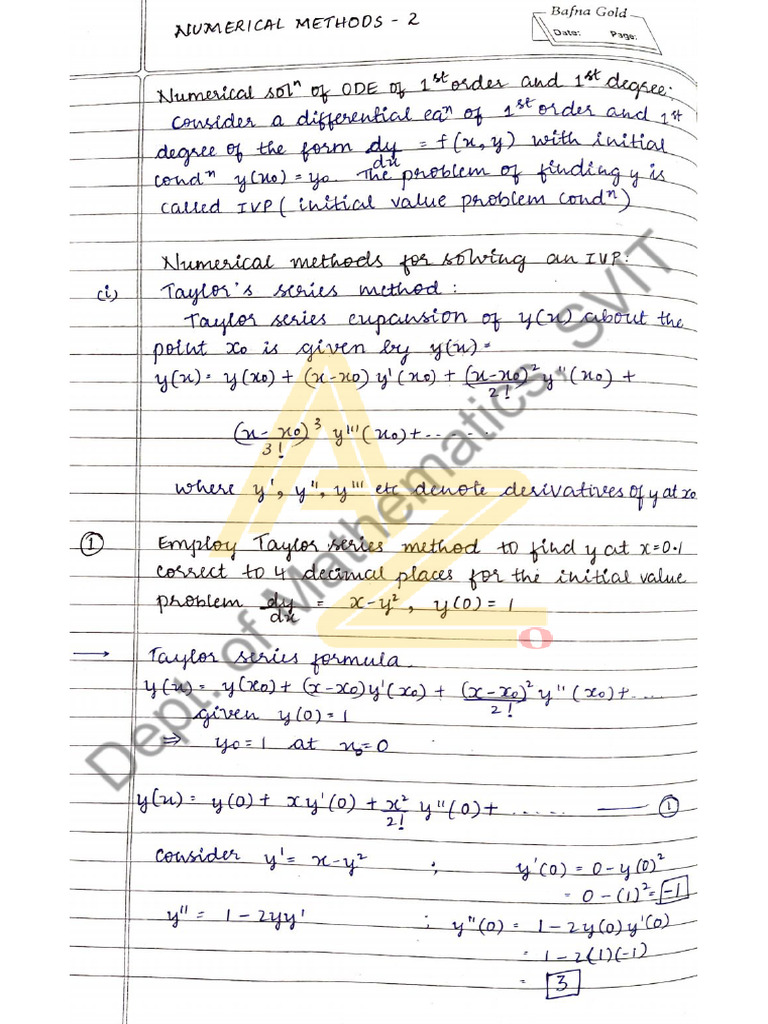 NUMERICAL METHODS - 2
Bafna Gold
Date: Page:
Numerical solⁿ of ODE of 1ˢᵗ order and 1ˢᵗ degree:
Consider a differential eqⁿ of 1ˢᵗ order and 1ˢᵗ
degree of the form dy/dx = f(x, y) with initial
condⁿ y(x₀) = y₀. The problem of finding y is
called IVP ( initial value problem condⁿ)
Numerical methods for solving an IVP:
(i) Taylor's series method :
Taylor series expansion of y(x) about the
point x₀ is given by y(x) =
y(x) = y(x₀) + (x-x₀) y'(x₀) + (x-x₀)²/2! y''(x₀) +
(x-x₀)³/3! y'''(x₀) + ......
where y', y'', y''' etc denote derivatives of y at x₀
① Employ Taylor series method to find y at x=0.1
correct to 4 decimal places for the initial value
problem dy/dx = x-y², y(0) = 1
→ Taylor series formula.
y(x) = y(x₀) + (x-x₀)y'(x₀) + (x-x₀)²/2! y''(x₀) + .....
given y(0) = 1
⇒ y₀ = 1 at x₀=0
y(x) = y(0) + xy'(0) + x²/2! y''(0) + ...... — ①
Consider y' = x-y² ; y'(0) = 0-y(0)²
= 0-(1)² = -1
y'' = 1-2yy' ; y''(0) = 1-2y(0)y'(0)
= 1-2(1)(-1)
= 3
Dept. of Mathematics, SVIT